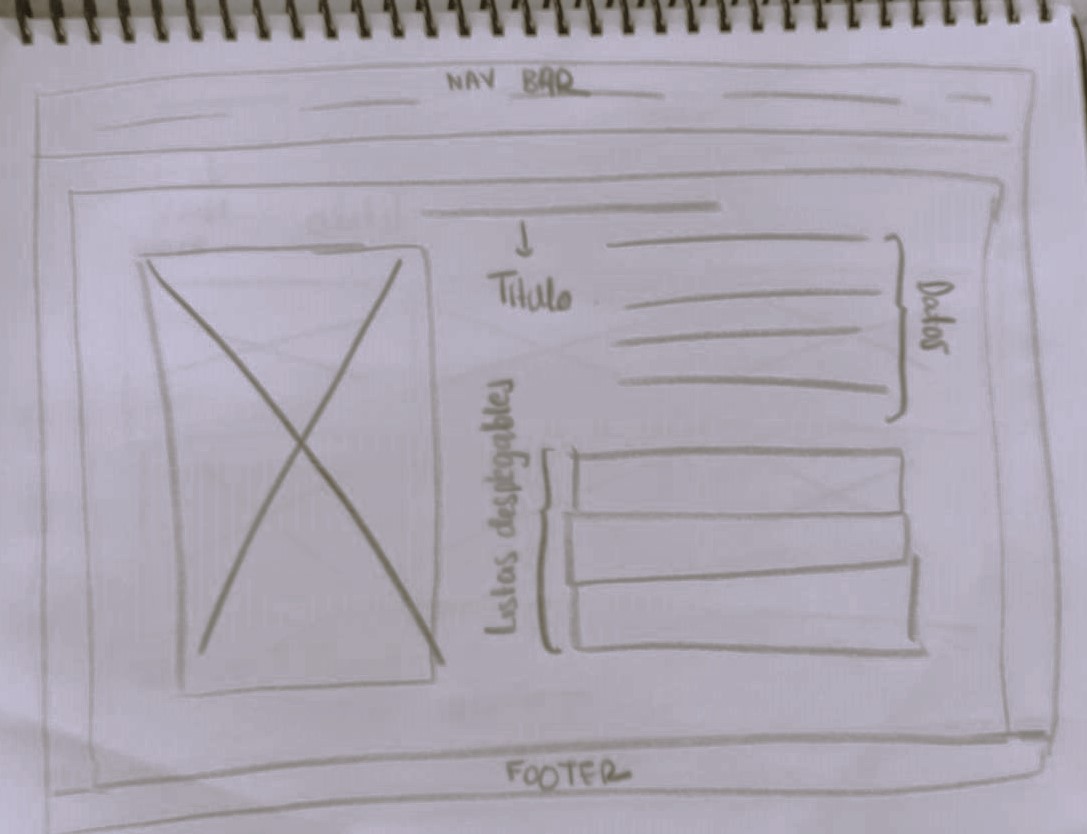 NAV BAR
Título
Datos
Listas desplegables
FOOTER